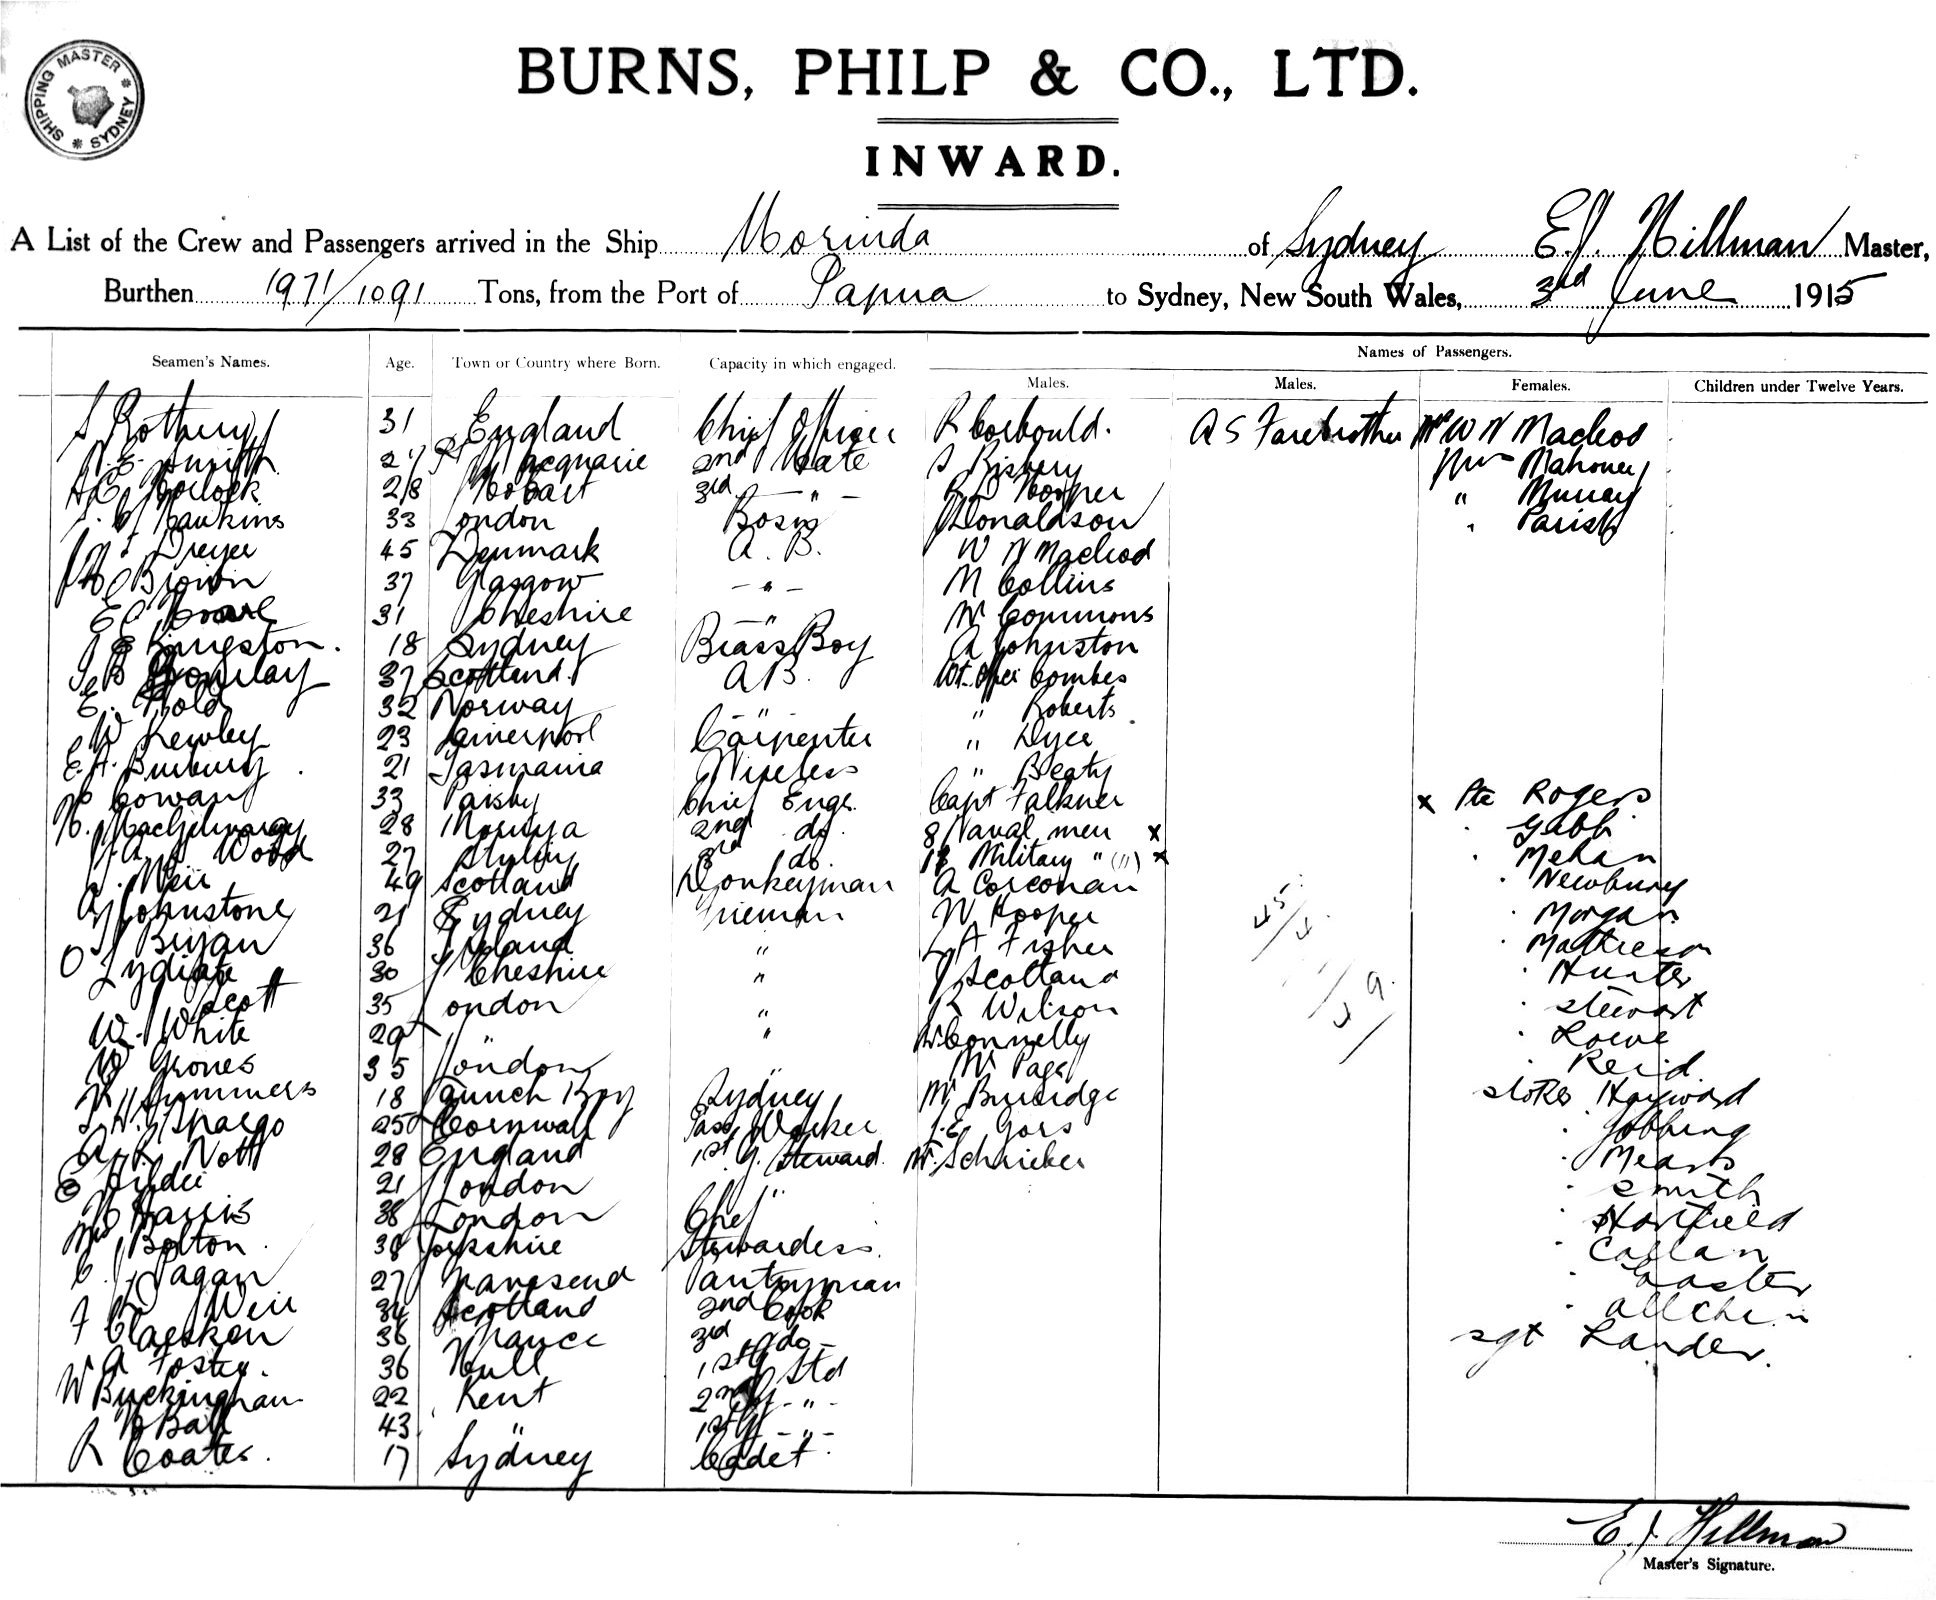 SHIPPING MASTER * SYDNEY *
BURNS, PHILP & CO., LTD.
INWARD.
A List of the Crew and Passengers arrived in the Ship Morinda of Sydney E.J. Hillman Master,
Burthen 1971/1091 Tons, from the Port of Papua to Sydney, New South Wales, 3rd June 1915
Names of Passengers.
Seamen's Names. Age. Town or Country where Born. Capacity in which engaged. Males. Males. Females. Children under Twelve Years.
S Rothery 31 England Chief Officer R Corbould. A S Farebrother Mrs W N Macleod
Smith 27 Pt Macquarie 2nd Mate S Mrs Mahoney
Morlock 28 Hobart 3rd - " - Hooper " Murray
Hawkins 33 London Bosn Donaldson " Parish
Dreyer 45 Denmark A. B. W N Macleod
Brown 37 Glasgow - " - M Collins
31 Cheshire " Mr Commons
Kingston. 18 Sydney Brass Boy A Johnston
37 Scotland. A B. Wt. Offcr Combes
E. Hold 32 Norway - " - " Roberts
W Kewley 23 Liverpool Carpenter " Dyer
E.A. Burbury. 21 Tasmania Wireless " Beaty
Cowan 33 Paisley Chief Engr. Capt Falkner x Pte Rogers
28 Moruya 2nd do. 8 Naval men x " Gabb
Wood 27 3rd do. 18 Military " (11) x " Mehan
Weir 49 Scotland Donkeyman A Corcoran " Newbury
Johnstone 21 Sydney Fireman W Hooper " Morgan
Bryan 36 Ireland " L A Fisher " Mathieson
Lydiate 30 Cheshire " J Scotland " Hunter
Scott 35 London " R Wilson " Stewart
W. White 29 " " Mr Connelly " Lowe
Grones 35 London " Mr Page " Reid
Summers 18 Launch Boy Sydney Mr Burridge Stokes Hayward
Spargo 25 Cornwall Pass Worker J.E. Gors " Gobbing
A. R. Nott 28 England 1st G. Steward. Mr. Schrieber " Mears
21 London " " Smith
Harris 38 London Chef " Hartfield
Mrs Bolton. 38 Yorkshire Stewardess. " Callan
Pagan 27 Gravesend Pantryman " Easter
Weir 34 Scotland 2nd Cook " Allchin
F Claesken 36 France 3rd do - Sgt Lander.
A Foster. 36 Hull 1st G Std
W Buckingham 22 Kent 2nd G - " -
Ball 43 " 1st G - " -
R Coates. 17 Sydney Cadet.
45/4
/49.
E.J. Hillman
Master's Signature.